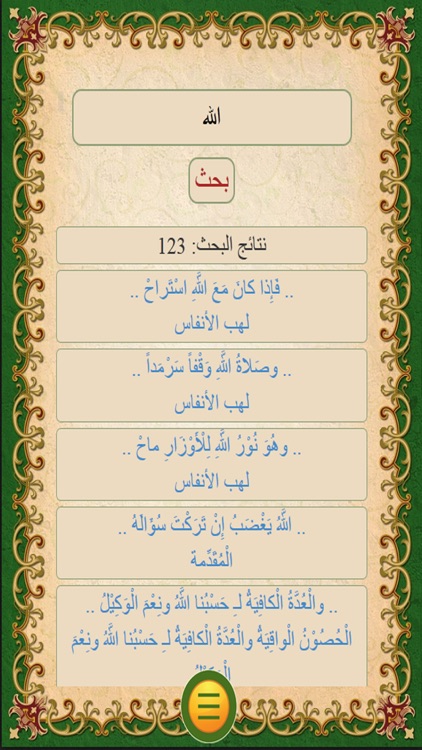 الله
بحث
نتائج البحث: 123
.. فَإِذا كانَ مَعَ اللَّهِ اسْتَراحْ ..
لهب الأنفاس
.. وصَلاةُ اللَّهِ وَقْفاً سَرْمَداً ..
لهب الأنفاس
.. وهُوَ نُوْرُ اللَّهِ لِلْأَوْزَارِ ماحْ ..
لهب الأنفاس
.. اللَّهُ يَغْضَبُ إِنْ تَرَكْتَ سُؤَالَهُ ..
الْمُقَدِّمة
.. والْعُدَّةُ الْكافِيَةُ لـِ حَسْبُنا اللَّهُ ونِعْمَ الْوَكِيْلُ ..
الْحُصُوْنُ الْواقِيَةُ والْعُدَّةُ الْكافِيَةُ لـِ حَسْبُنا اللَّهُ ونِعْمَ